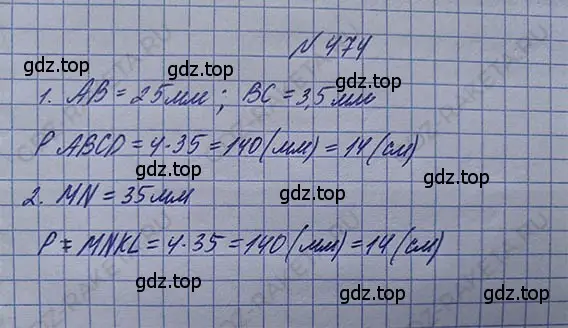 N 474
gdz.top gdz.top
1. AB = 25мм ; BC = 3,5мм
gdz.top gdz.top
P ABCD = 4·35 = 140 (мм) = 14 (см)
gdz.top gdz.top
2. MN = 35мм
P = MNKL = 4·35 = 140 (мм) = 14 (см)
gdz.top gdz.top
gdz.top gdz.top